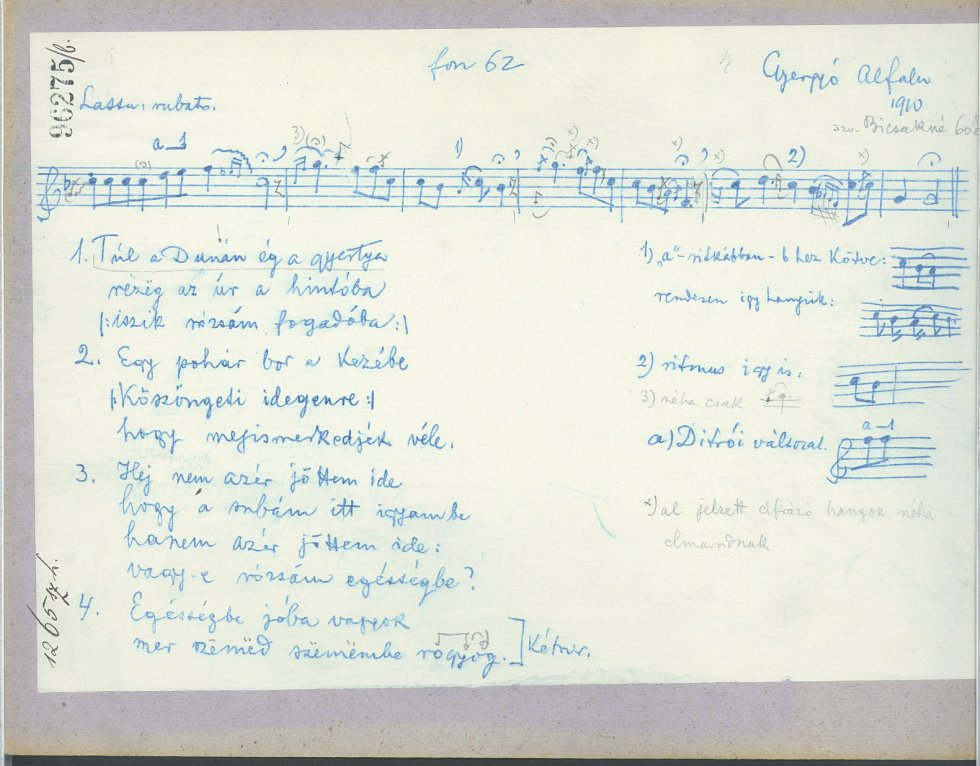 96275/b.
fon 62
Gyergyó Alfalu
1910
Lassu, rubato.
szv. Bicsakné
a—1
3)
1)
2)
x)
1. Túl a Dunán ég a gyertya
rézëg az úr a hintóba
|:iszik rózsám fogadóba:|
2. Egy pohár bor a kezébe
|:Köszöngeti idegenre:|
hogy megismerkedjék véle.
3. Hej nem azér jöttem ide
hogy a subám itt igyam be
hanem azér jöttem ide:
vagy-e rózsám egésségbe?
4. Egésségbe jóba vagyok
mer szëmëd szëmëmbe rogyog.] Kétszer.
1) „a"-ritkábban - b hez kötve:
rendesen igy hangzik:
2) ritmus igy is:
3) néha csak
a) Ditrói változat.
a—1
x) al jelzett cifrázó hangok néha
elmaradnak
1265 sz. h.